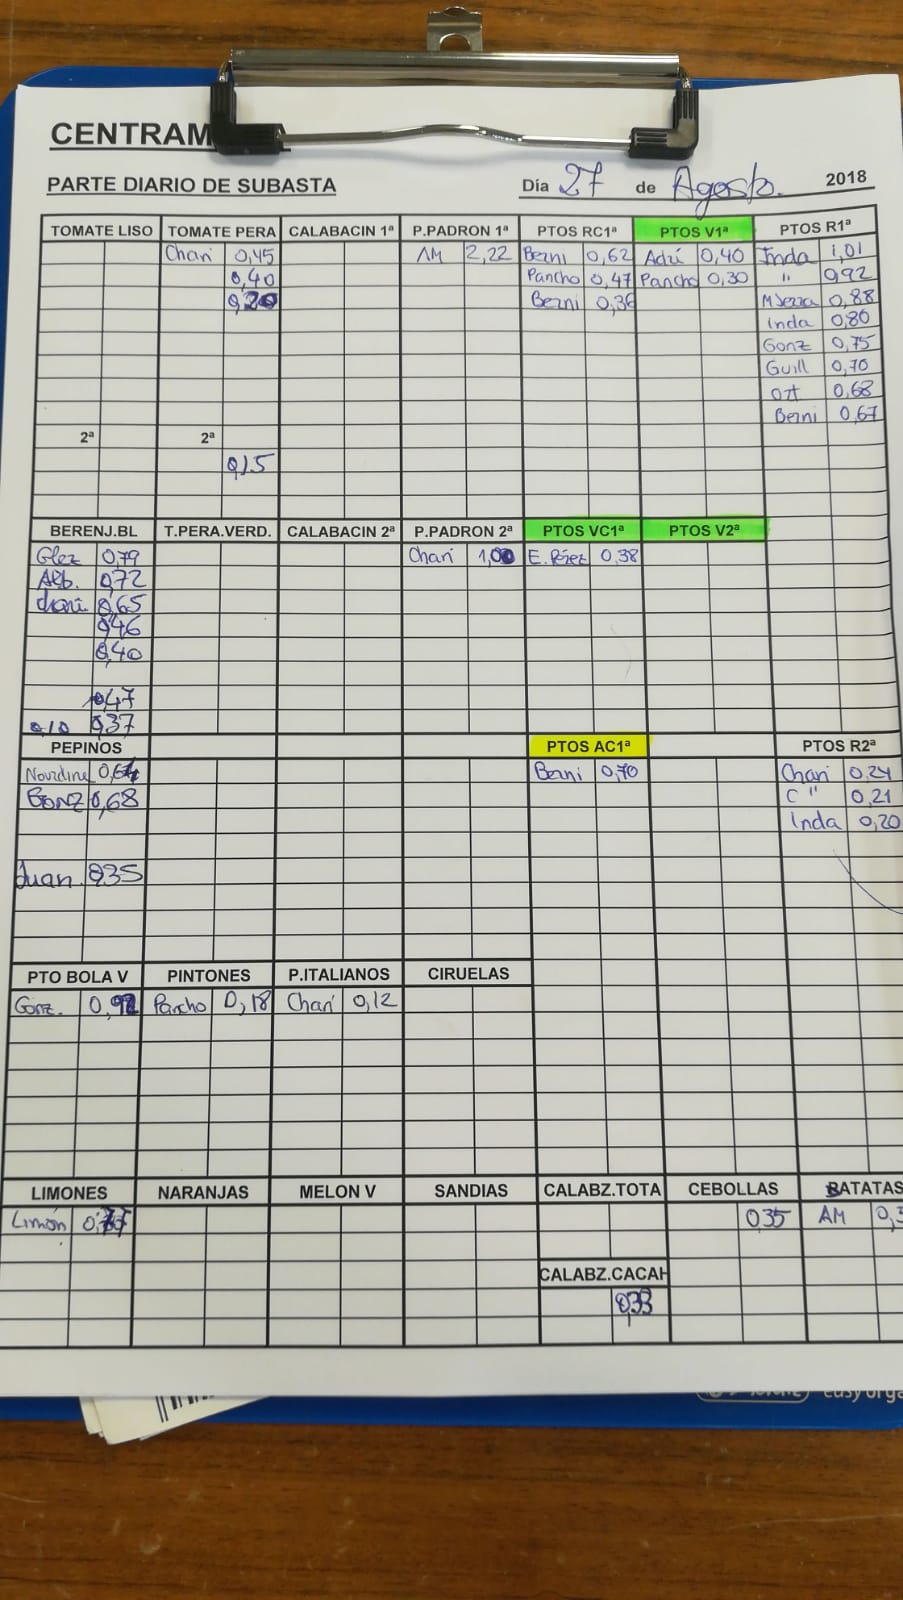 CENTRAM
PARTE DIARIO DE SUBASTA
Día 27 de Agosto. 2018
TOMATE LISO TOMATE PERA CALABACIN 1ª P.PADRON 1ª PTOS RC1ª PTOS V1ª PTOS R1ª
Chari 0,45 AM 2,22 Berni 0,62 Adri 0,40 Inda 1,01
0,40 Pancho 0,47 Pancho 0,30 " 0,92
Berni 0,36 M Serra 0,88
Inda 0,80
Gonz 0,75
Guill 0,70
Ort 0,68
Berni 0,67
2ª 2ª
0,15
BERENJ.BL T.PERA.VERD. CALABACIN 2ª P.PADRON 2ª PTOS VC1ª PTOS V2ª
Glez 0,79 Chari 1,00 E. Pérez 0,38
Alb. 0,72
Chari 0,65
0,46
0,40
0,47
0,37
PEPINOS PTOS AC1ª PTOS R2ª
Nourdine Berni 0,70 Chari 0,24
Gonz 0,68 C " 0,21
Inda 0,20
Juan 0,35
PTO BOLA V PINTONES P.ITALIANOS CIRUELAS
Gonz. Pancho 0,18 Chari 0,12
LIMONES NARANJAS MELON V SANDIAS CALABZ.TOTA CEBOLLAS BATATAS
Limón 0,35 AM
CALABZ.CACAH
0,33